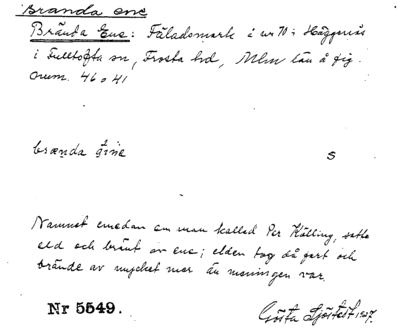 Brända ene
Brända Ene: Fäladsmark i nr 70 i Häggenäs
i Fulltofta sn, Frosta hd, Mlm län å fig.
num. 46 o 41
brænda
s
Namnet emedan en man kallad Per Kölling, satte
eld och bränt en ene; elden tog då fart och
brände av mycket mer än meningen var.
Nr 5549.
Gösta Sjöstedt 1927.